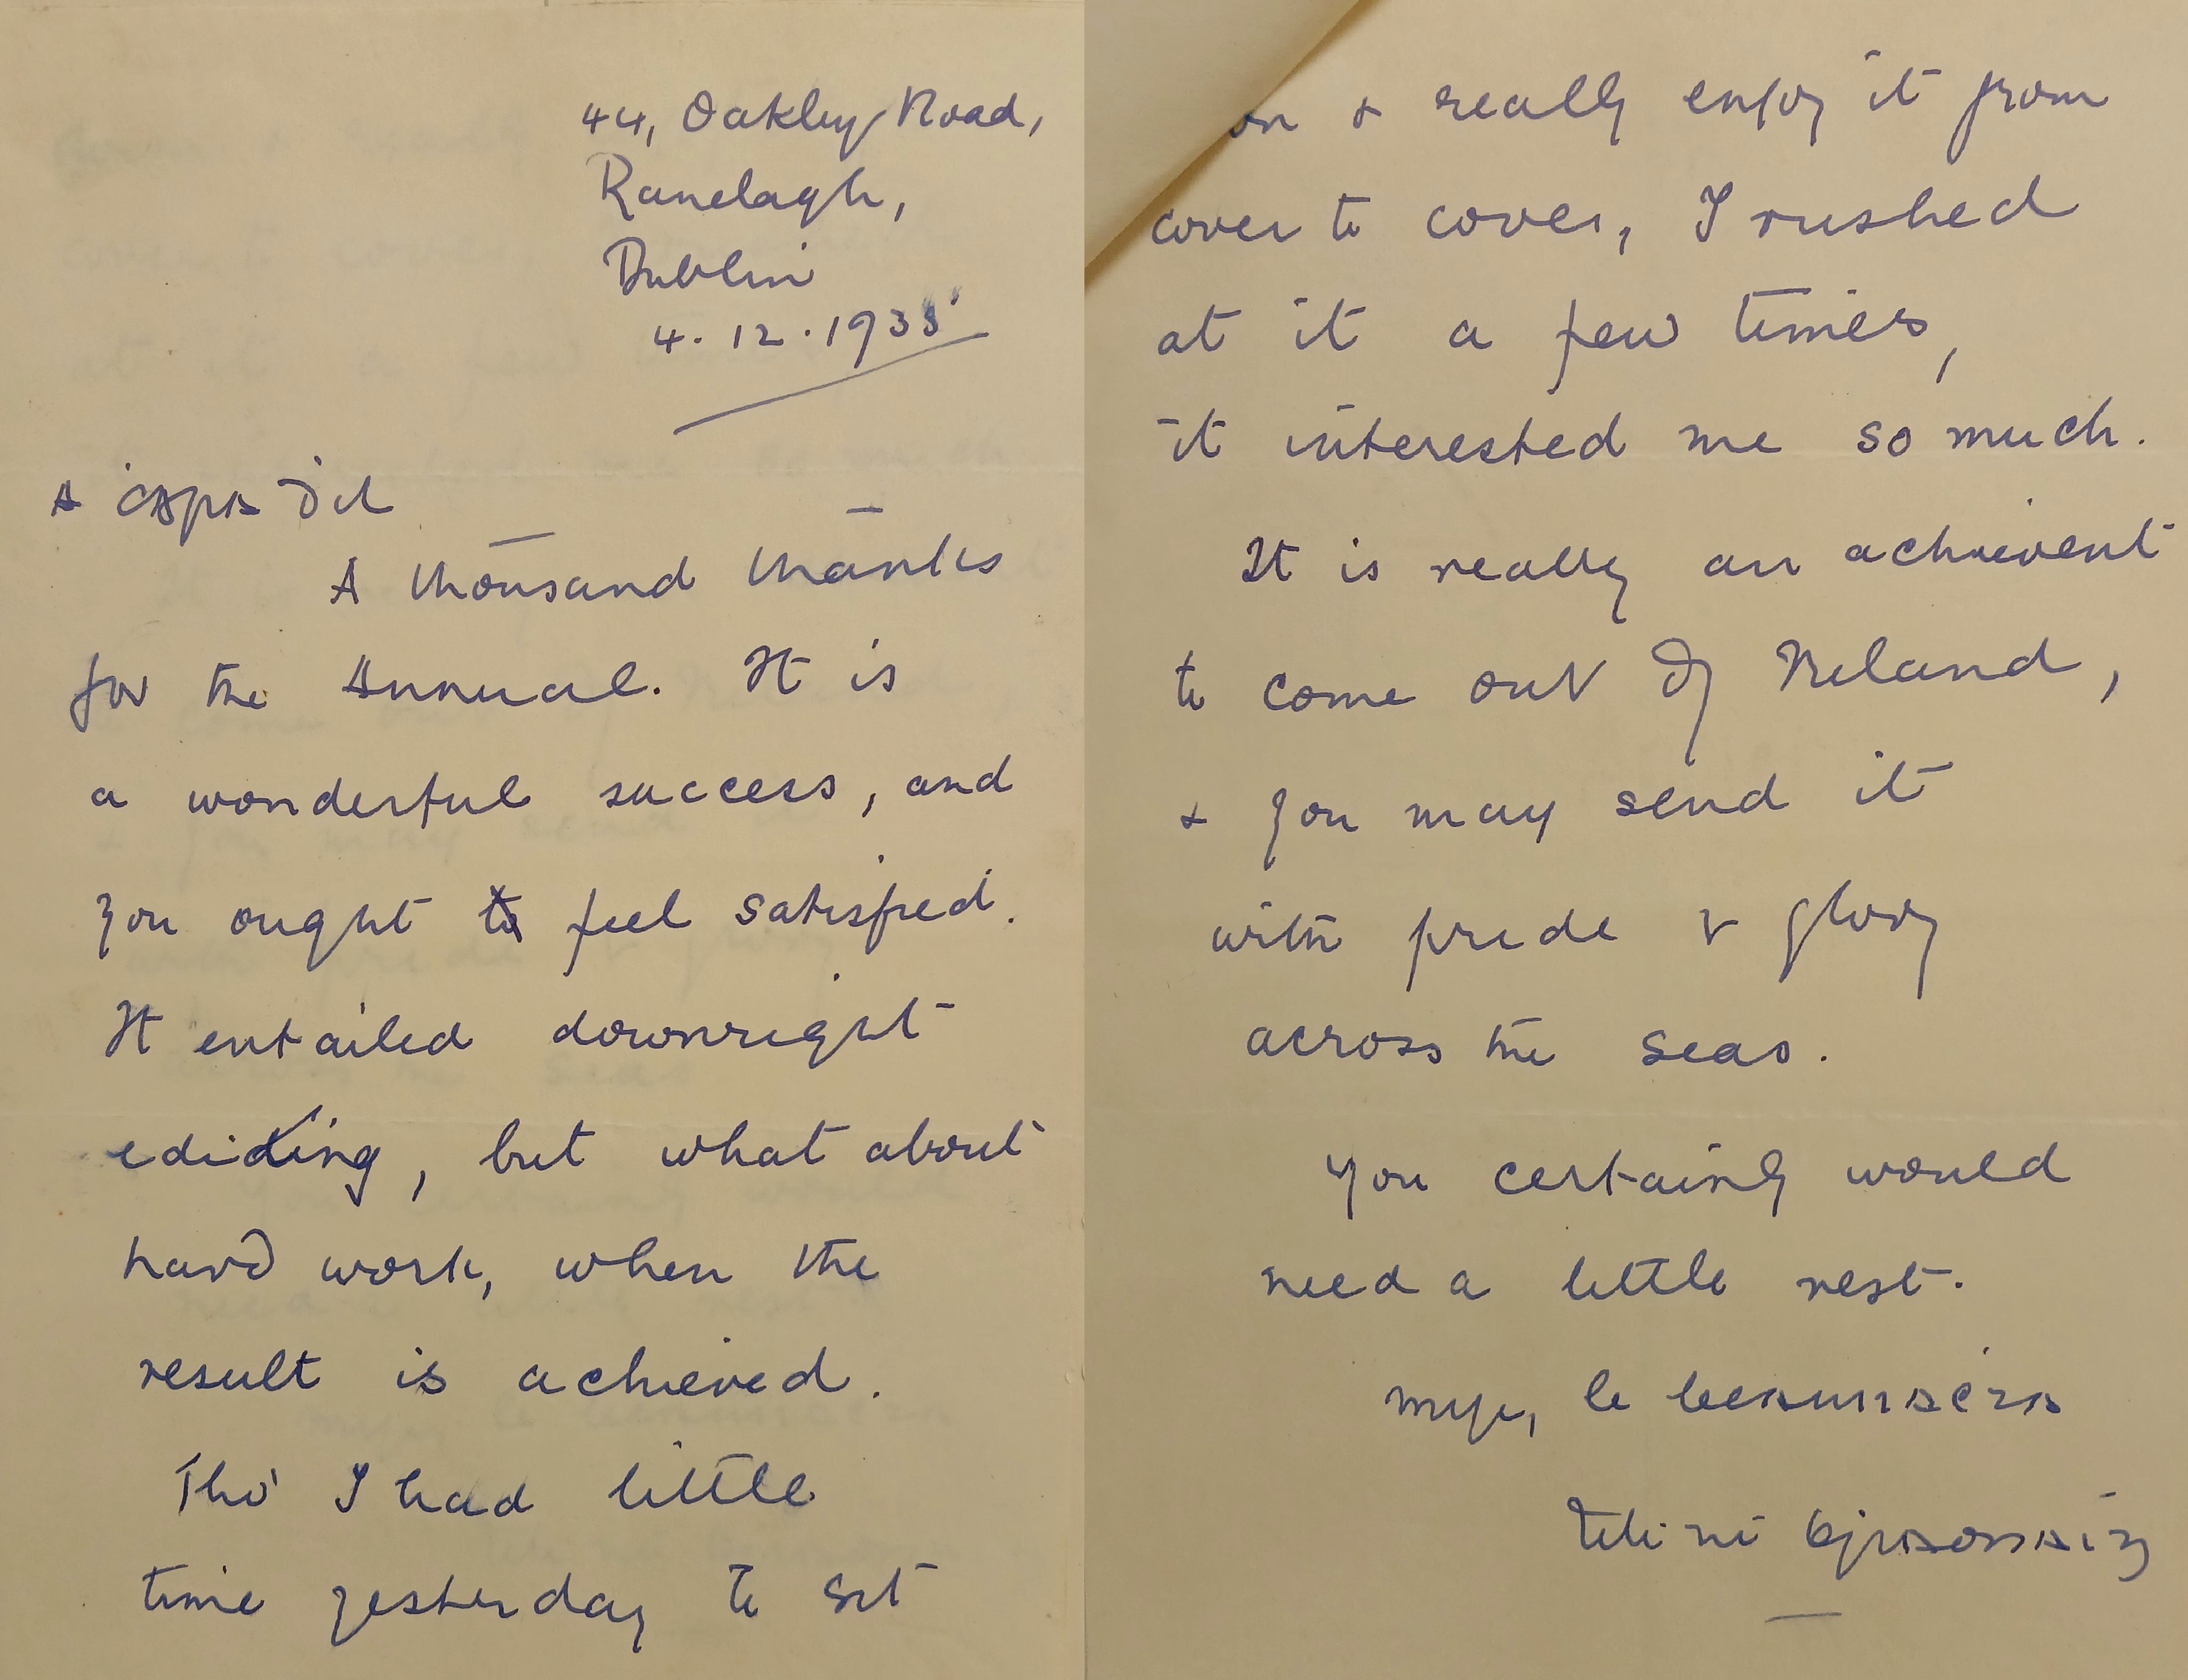 44, Oakley Road,
Ranelagh,
Dublin
4. 12. 1938
A ċara dil
A thousand thanks
for the Annual. It is
a wonderful success, and
you ought to feel satisfied.
It entailed downright
ediding, but what about
hard work, when the
result is achieved.
Tho' I had little
time yesterday to sit
on & really enjoy it from
cover to cover, I rushed
at it a few times,
it interested me so much.
It is really an achievent
to come out of Ireland,
& you may send it
with pride & glory
across the seas.
You certainly would
need a little rest.
mise, le beannacta
ni